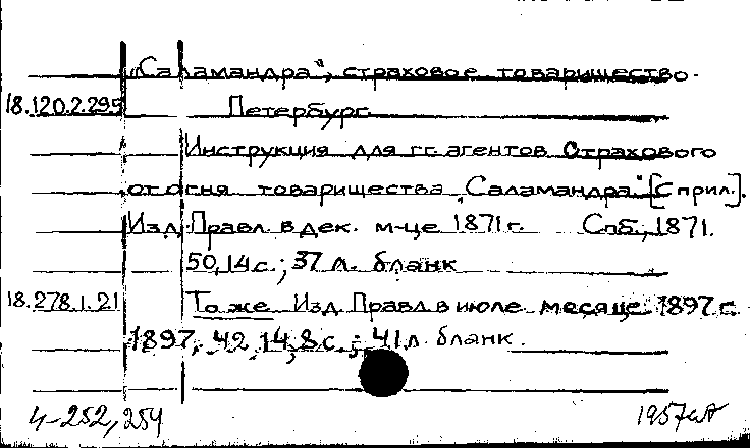 „Саламандра", страховое товарищество.
18.120.2.295 Петербург.
Инструкция для гг. агентов Страхового
от огня товарищества „Саламандра" [С прил.].
Изд. Правл. в дек. м-це 1871 г. Спб., 1871.
50, 14 с.; 37 л. бланк
18.278.1.21 То же Изд. Правл. в июле месяце 1897 г.
1897, 42, 14, 8 с.; 41 л. бланк.
4-252, 254